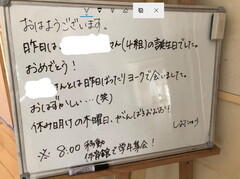 おはようございます。
昨日は さん(4組)の誕生日でした。
おめでとう!
さんとは昨日ばったりヨークで会いました。
おはずかしい…(笑)
休み明けの木曜日、がんばりましょう!
※ 8:00 移動
体育館で学年集会!